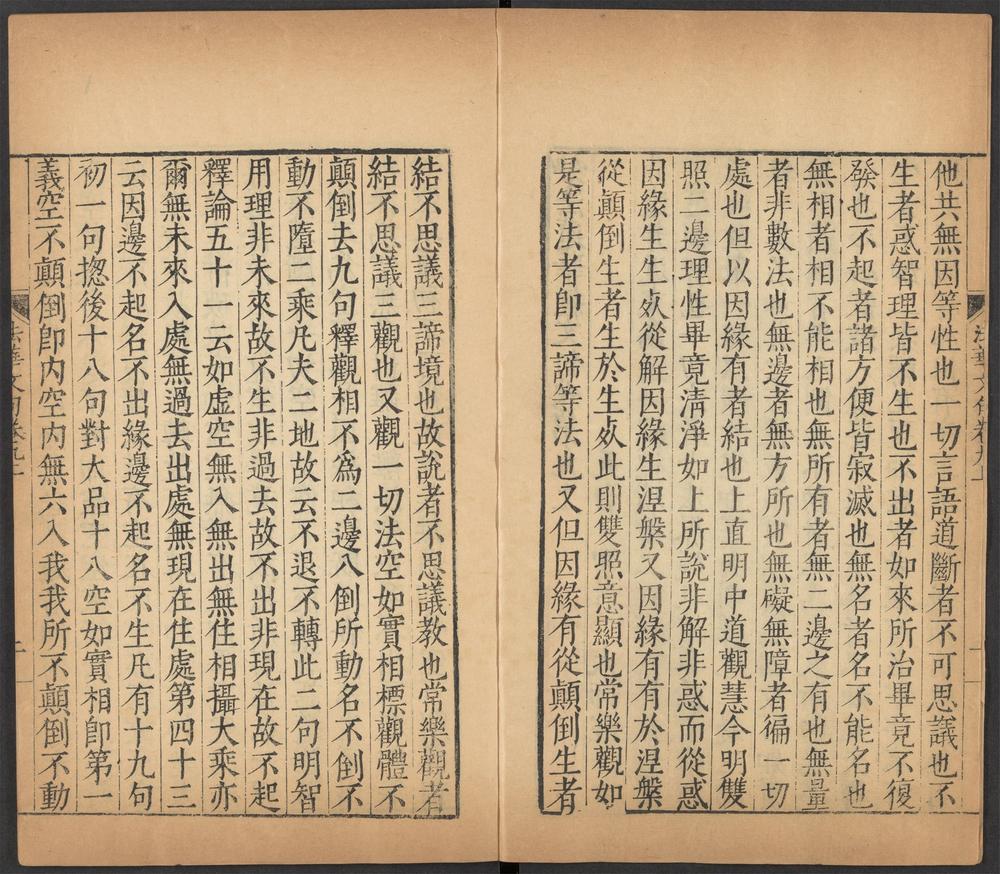 他共無因等性也一切言語道斷者不可思議也不
生者惑智理皆不生也不出者如來所治畢竟不復
發也不起者諸方便皆寂滅也無名者名不能名也
無相者相不能相也無所有者無二邊之有也無量
者非數法也無邊者無方所也無礙無障者徧一切
處也但以因緣有者結也上直明中道觀慧今明雙
照二邊理性畢竟清淨如上所說非解非惑而從惑
因緣生生𣦸從解因緣生涅槃又因緣有有於涅槃
從顛倒生者生於生𣦸此則雙照意顯也常樂觀如
是等法者卽三諦等法也又但因緣有從顛倒生者
法華文句卷九上
結不思議三諦境也故說者不思議教也常樂觀者
結不思議三觀也又觀一切法空如實相標觀體不
顛倒去九句釋觀相不爲二邊八倒所動名不倒不
動不墮二乘凡夫二地故云不退不轉此二句明智
用理非未來故不生非過去故不出非現在故不起
釋論五十一云如虛空無入無出無住相攝大乘亦
爾無未來入處無過去出處無現在住處第四十三
云因邊不起名不出緣邊不起名不生凡有十九句
初一句揔後十八句對大品十八空如實相卽第一
義空不顛倒卽內空內無六入我我所不顛倒不動
法華文句卷九上